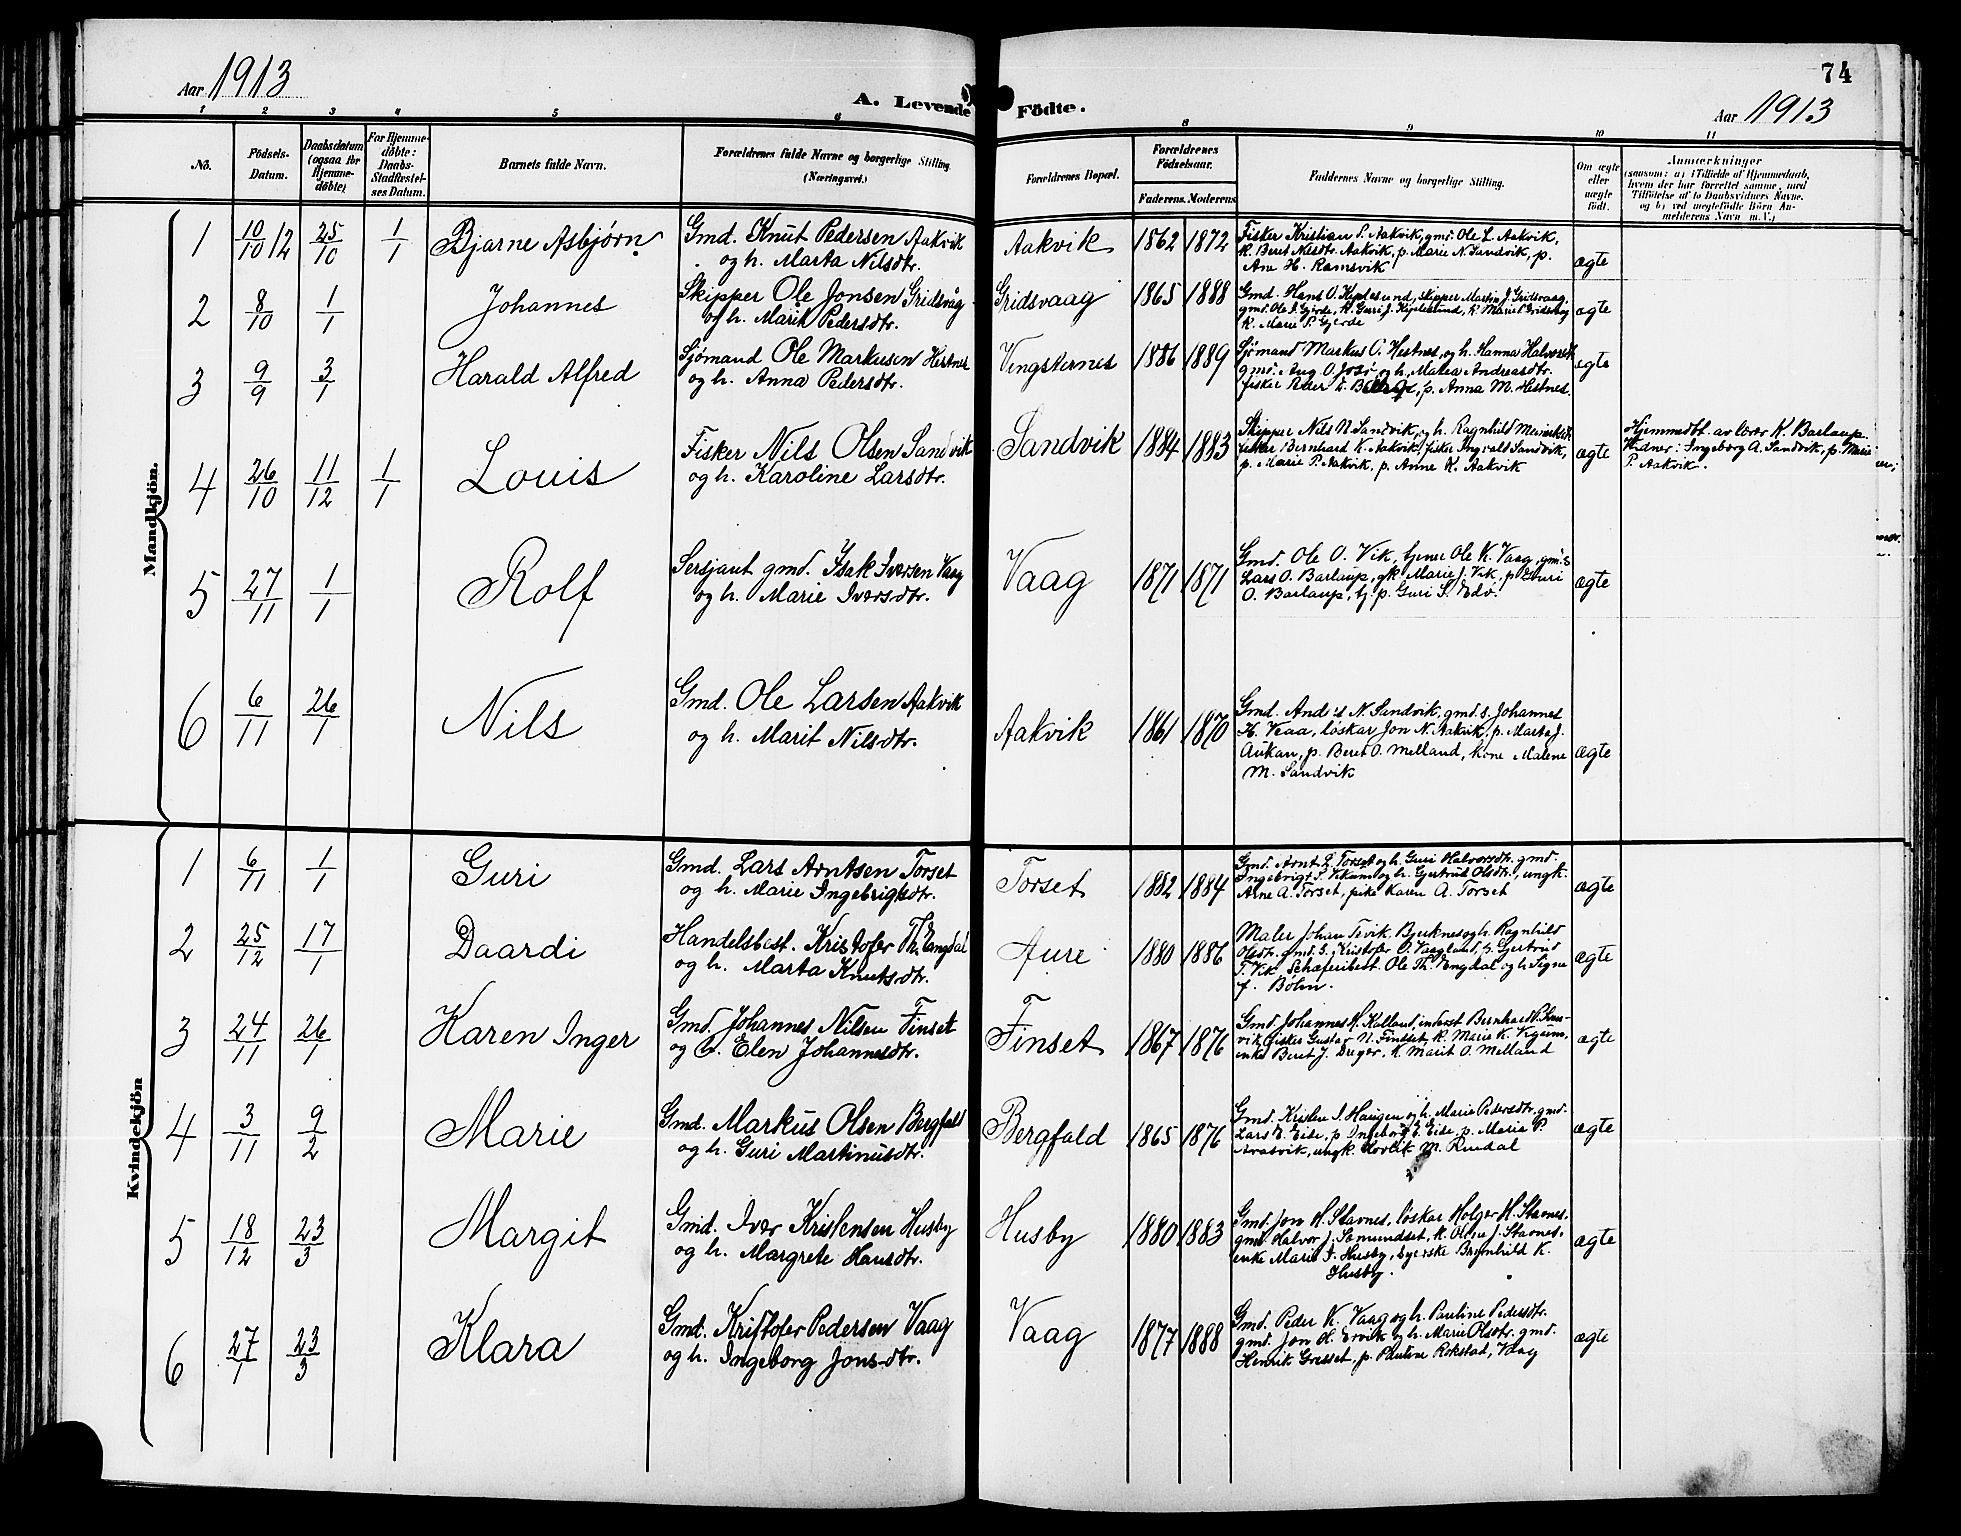 Aar 1913
A. Levende Födte.
74
Aar 1913
1 2 3 4 5 6 8 9 10 11
No.
Födsels-Datum.
Daabsdatum (ogsaa for Hjemmedöbte)
For Hjemmedöbte: Daabs-Stadfæstelses Datum.
Barnets fulde Navn.
Forældrenes fulde Navne og borgerlige Stilling. (Næringsvei.)
Forældrenes Bopæl.
Forældrenes Födselsaar.
Faderens. Moderens
Faddernes Navne og borgerlige Stilling.
Om ægte eller uægte födt.
Anmærkninger
(saasom: a) i Tilfælde af Hjemmedaab, hvem der har forrettet samme, med Tilföielse af to Daabsvidners Navne, og b) ved uægtefödte Börn Anmelderens Navn m. V.)
Mandkjön.
1 10/10 12 25/10 1/1 Bjarne Asbjørn
Gmd. Knut Pedersen Aakvik
og h. Marta Nilsdtr.
Aakvik 1862 1872
Fisker Kristian P. Aakvik, gmd. Ole L. Aakvik,
k. Beret Nilsdtr. Aakvik, p. Marie N. Sandvik, p.
Ane H. Ramsvik
ægte
2 8/10 1/1 Johannes
Skipper Ole Jonsen Gridsvåg
og h. Marit Pedersdtr.
Gridsvaag 1865 1888
Gmd. Hans O. skipper Martin J. Gridsvaag,
gmd. Ole I. Gjerde, k. Guri J. k. Marie
k. Marie P. Gjerde
ægte
3 9/9 3/1 Harald Alfred
Sjømand Ole Markusen Hestnes
og h. Anna Pedersdtr.
Vingsternes 1886 1889
Sjømand Markus O. Hestnes, og h. Hanna
gmd. Aug. O. og h. Malea Andreasdtr.
fisker Peter p. Anna M. Hestnes.
ægte
4 26/10 11/12 1/1 Louis
Fisker Nils Olsen Sandvik
og h. Karoline Larsdtr.
Sandvik 1884 1883
Skipper Nils N. Sandvik, og h. Ragnhild
fisker Bernhard K. Aakvik, fisker Ingvald Sandvik,
p. Marie P. Aakvik, p. Anne K. Aakvik
ægte
Hjemmedt. av lærer K. Barlaup.
Vidner: Ingeborg A. Sandvik, p. Marie
P. Aakvik.
5 27/11 1/1 Rolf
Sersjant gmd. Isak Iversen Vaag
og h. Marie Iversdtr.
Vaag 1871 1871
Gmd. Ole O. Vik, tjener Ole K. Vaag, gmd.s
Lars O. Barlaup, gk. Marie J. Vik, p. Guri
O. Barlaup, tj. p. Guri S. Edv.
ægte
6 6/11 26/1 Nils
Gmd. Ole Larsen Aakvik
og h. Marit Nilsdtr.
Aakvik 1861 1870
Gmd. Anders N. Sandvik, gmd.s. Johannes
H. Veaa, løskar Jon N. Aakvik, p. Marta J.
Aukan, p. Beret O. Melland, kone Malene
M. Sandvik
ægte
Kvindekjön
1 6/11 1/1 Guri
Gmd. Lars Arntsen Torset
og h. Marie Ingebrigtsdtr.
Torset 1882 1884
Gmd. Arnt L. Torset og h. Guri Halvorsdtr. gmd.
Ingebrigt og h. Gjertrud Olsdtr., ungk.
Arne A. Torset, pike Karen A. Torset
ægte
2 25/12 17/1 Daardi
Handelsbest. Kristofer Th. Engdal
og h. Marta Knutsdtr.
Aure 1880 1886
Maler Johan Tevik, Bjerknes og h. Ragnhild
Olsdtr. gmd. S. Kristofer O. Vaagland, tj. Gjertrud
T. Vik. Schæferibest. Ole Th. Engdal og h. Signe
f. Bolin.
ægte
3 24/11 26/1 Karen Inger
Gmd. Johannes Nilsen Finset
og h. Elen Johannesdtr.
Finset 1867 1876
Gmd. Johannes H. Kalland, inderst Bernhard
fisker Gustav N. Findset, k. Marie K.
enke Beret J. Dreyer, k. Marit O. Melland
ægte
4 3/11 9/2 Marie
Gmd. Markus Olsen Bergfald
og h. Guri Martinusdtr.
Bergfald 1865 1876
Gmd. Kristen I. Haugen og h. Marie Pedersdtr. gmd.
Lars E. Eide, p. Ingeborg E. Eide, p. Maria P.
Aresvik, ungk. M. Rindal
ægte
5 18/12 23/3 Margit
Gmd. Iver Kristensen Husby
og h. Margrete Hansdtr.
Husby 1880 1883
Gmd. Jon H. Stavnes, løskar Holger H. Stavnes,
gmd Halvor J. Semundset, k. Oline J. Stavnes,
enke Marie I. Husby, Syerske Brynhild K.
Husby.
ægte
6 27/1 23/3 Klara
Gmd. Kristofer Pedersen Vaag
og h. Ingeborg Jonsdtr.
Vaag 1877 1888
Gmd. Peder K. Vaag og h. Pauline Pedersdtr.
gmd. Jon H. Ervik og h. Marie Olsdtr. gmd.
Henrik Grisset, p. Pauline Rokstad, Vaag
ægte